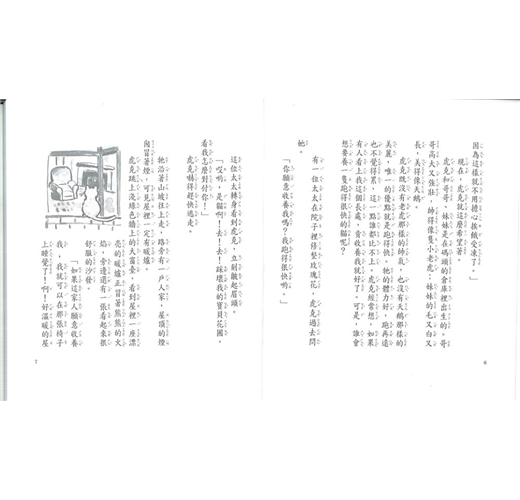 因為這樣就不用擔心挨餓受凍了。」
現在，虎克就這麼希望著。
虎克和哥哥、妹妹是在碼頭的倉庫裡出生的。哥
哥高大又強壯，帥得像隻小老虎；妹妹的毛又白又
長，美得像天鵝。
虎克既沒有老虎那樣的帥氣，也沒有天鵝那樣的
美麗，唯一的優點就是跑得快。牠的體力好，跑再遠
也不覺得累，這一點誰都比不上。虎克經常想，如果
有人看上我這個長處，肯收養我就好了。可是，誰會
想要養一隻跑得很快的貓呢？
有一位太太在院子裡修整玫瑰花，虎克過去問
她。
「你願意收養我嗎？我跑得很快喲。」
6
這位太太轉身看到虎克，立刻皺起眉頭。
「哎喲，是貓啊！去！去！踩壞我的寶貝花園，
看我怎麼對付你！」
虎克嚇得趕快逃走。
牠沿著山坡往上走，路旁有一戶人家，屋頂的煙
囪冒著煙，可見屋裡一定有暖爐。
虎克跳上淺綠色牆上的大窗臺，看到屋裡一座漂
亮的暖爐正冒著熊熊的火
焰，旁邊還有一張看起來很
舒服的沙發。
「如果這家人願意收養
我，我就可以在那張椅子
上睡覺了！啊！好溫暖的屋
7